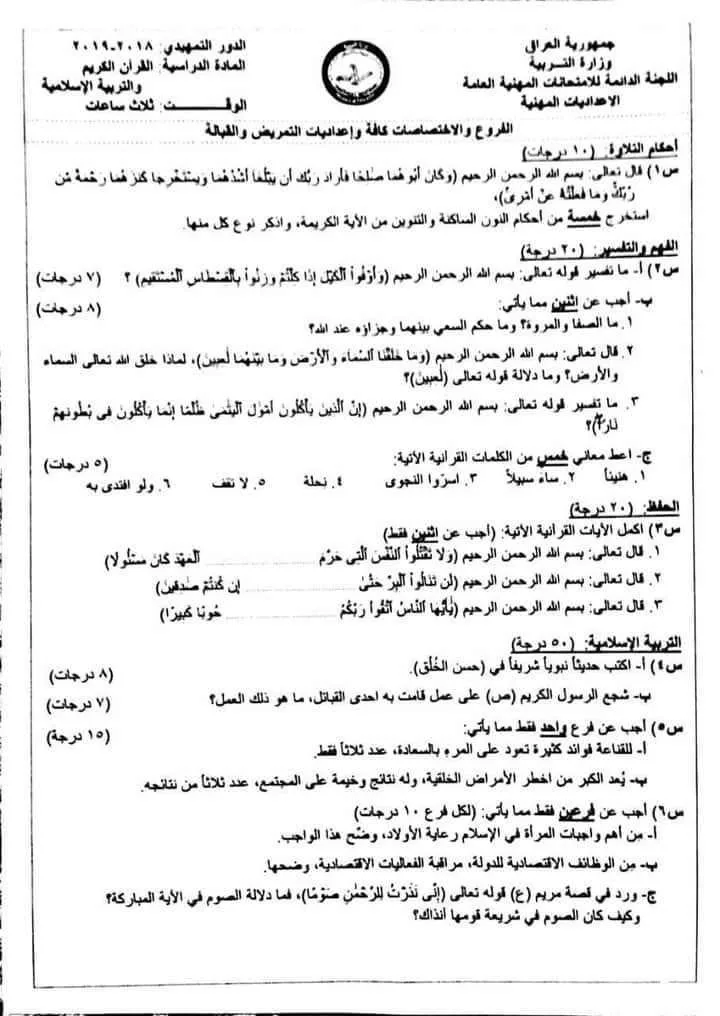 جمهورية العراق
وزارة التربية
اللجنة الدائمة للامتحانات المهنية العامة
الاعداديات المهنية
الدور التمهيدي: ٢٠١٨-٢٠١٩
المادة الدراسية: القرآن الكريم
والتربية الإسلامية
الوقت: ثلاث ساعات
الفروع والاختصاصات كافة وإعداديات التمريض والقبالة
أحكام التلاوة: (١٠ درجات)
س١) قال تعالى: بسم الله الرحمن الرحيم (وَكَانَ أَبُوهُمَا صَٰلِحًا فَأَرَادَ رَبُّكَ أَن يَبْلُغَا أَشُدَّهُمَا وَيَسْتَخْرِجَا كَنزَهُمَا رَحْمَةً مِّن
رَّبِّكَ وَمَا فَعَلْتُهُ عَنْ أَمْرِي)،
استخرج خمسة من أحكام النون الساكنة والتنوين من الآية الكريمة، واذكر نوع كل منها.
الفهم والتفسير: (٢٠ درجة)
س٢) أ- ما تفسير قوله تعالى: بسم الله الرحمن الرحيم (وَأَوْفُوا۟ ٱلْكَيْلَ إِذَا كِلْتُمْ وَزِنُوا۟ بِٱلْقِسْطَاسِ ٱلْمُسْتَقِيمِ) ؟ (٧ درجات)
ب- أجب عن إثنين مما يأتي: (٨ درجات)
١. ما الصفا والمروة؟ وما حكم السعي بينهما وجزاؤه عند الله؟
٢. قال تعالى: بسم الله الرحمن الرحيم (وَمَا خَلَقْنَا ٱلسَّمَآءَ وَٱلْأَرْضَ وَمَا بَيْنَهُمَا لَٰعِبِينَ)، لماذا خلق الله تعالى السماء
والأرض؟ وما دلالة قوله تعالى (لَٰعِبِينَ)؟
٣. ما تفسير قوله تعالى: بسم الله الرحمن الرحيم (إِنَّ ٱلَّذِينَ يَأْكُلُونَ أَمْوَٰلَ ٱلْيَتَٰمَىٰ ظُلْمًا إِنَّمَا يَأْكُلُونَ فِى بُطُونِهِمْ
نَارًا)؟
ج- اعط معاني خمس من الكلمات القرانية الآتية: (٥ درجات)
١. هنيئاً ٢. ساءَ سبيلاً ٣. اسرّوا النجوى ٤. نحلة ٥. لا تقف ٦. ولو افتدى به
الحفظ: (٢٠ درجة)
س٣) اكمل الآيات القرانية الآتية: (أجب عن إثنين فقط)
١. قال تعالى: بسم الله الرحمن الرحيم (وَلَا تَقْتُلُوا۟ ٱلنَّفْسَ ٱلَّتِى حَرَّمَ .................... ٱلْعَهْدَ كَانَ مَسْـُٔولًا)
٢. قال تعالى: بسم الله الرحمن الرحيم (لَن تَنَالُوا۟ ٱلْبِرَّ حَتَّىٰ .................... إِن كُنتُمْ صَٰدِقِينَ)
٣. قال تعالى: بسم الله الرحمن الرحيم (يَٰٓأَيُّهَا ٱلنَّاسُ ٱتَّقُوا۟ رَبَّكُمُ .................... حُوبًا كَبِيرًا)
التربية الإسلامية: (٥٠ درجة)
س٤) أ- اكتب حديثاً نبوياً شريفاً في (حسن الخُلُق). (٨ درجات)
ب- شجع الرسول الكريم (ص) على عمل قامت به احدى القبائل، ما هو ذلك العمل؟ (٧ درجات)
س٥) أجب عن فرع واحد فقط مما يأتي: (١٥ درجة)
أ- للقناعة فوائد كثيرة تعود على المرء بالسعادة، عدد ثلاثاً فقط.
ب- يُعد الكبر من اخطر الأمراض الخلقية، وله نتائج وخيمة على المجتمع، عدد ثلاثاً من نتائجه.
س٦) أجب عن فرعين فقط مما يأتي: (لكل فرع ١٠ درجات)
أ- مِن أهم واجبات المرأة في الإسلام رعاية الأولاد، وضّح هذا الواجب.
ب- مِن الوظائف الاقتصادية للدولة، مراقبة الفعاليات الاقتصادية، وضحها.
ج- ورد في قصة مريم (ع) قوله تعالى (إِنِّى نَذَرْتُ لِلرَّحْمَٰنِ صَوْمًا)، فما دلالة الصوم في الآية المباركة؟
وكيف كان الصوم في شريعة قومها آنذاك؟